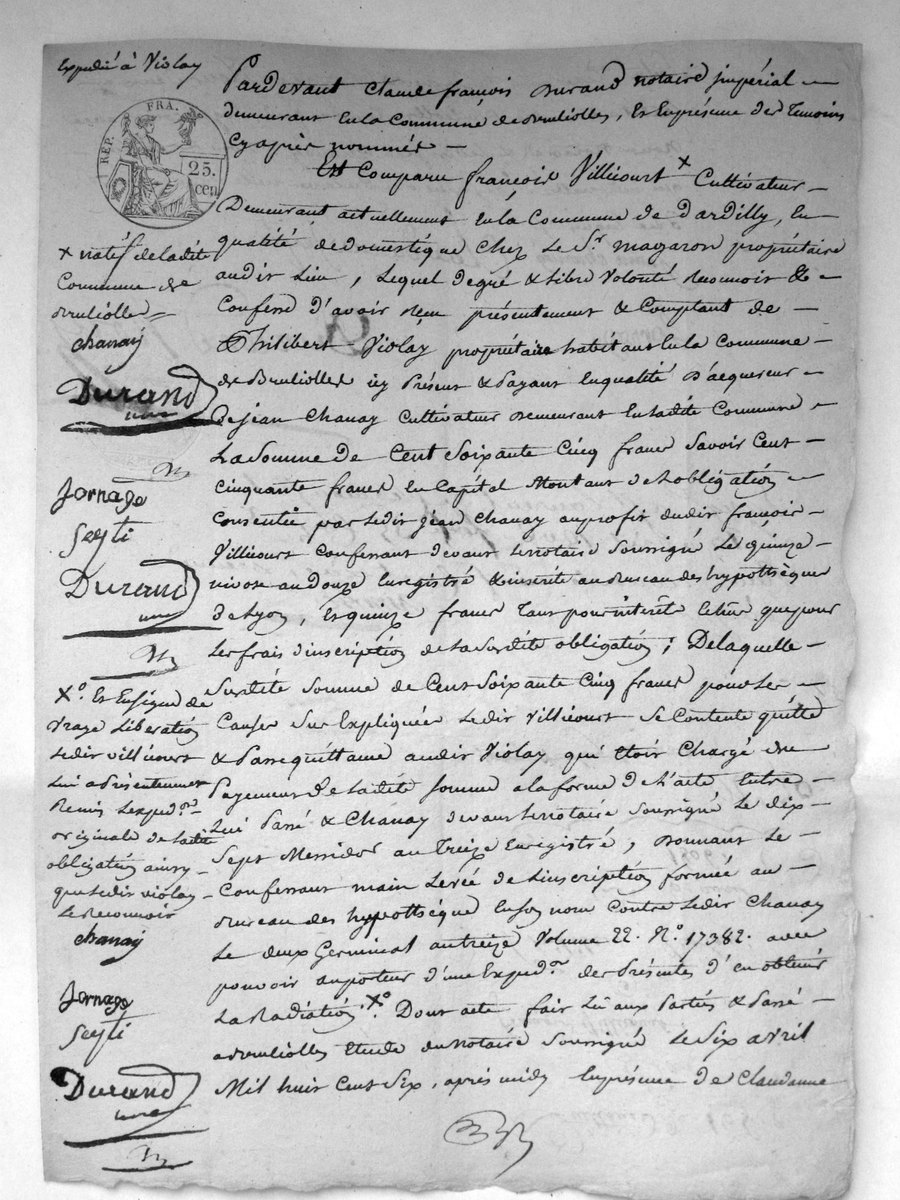 Expedié à Violay
REP. FRA.
25.
cen
Pardevant Claude françois Durand notaire jmpérial
demeurant En la Commune de Brulliolles, Et En présence des Temoins
Cy après nommés
Est Comparu françois Villicourt x Cultivateur
Demeurant actuellement En la Commune de Dardilly, En
qualité de domestique Chez Le Sr. magaron propriétaire
audit Lieu, Lequel de gré & Libre Volonté Reconnoit &
Confesse D'avoir Reçu présentement & Comptant de
Philibert Violay propriétaire habitant En la Commune
de Brulliolles icy Présent & Payant En qualité D'acquereur
De jean Chanay Cultivateur Demeurant En ladite Commune
La Somme De Cent Soixante Cinq francs Savoir Cent
Cinquante francs En Capital Montant de L'obligation
Consentie par Ledit jean Chanay au profit dudit françois
Villicourt Confessant devant Le notaire Soussigné Le quinze
nivose an Douze Enregistré & inscrite au Bureau des hypothèques
de Lyon, Et quinze francs Tant pour interêt que pour
Les frais d'inscription de La Susdite obligation; De laquelle
Susdite Somme de Cent Soixante Cinq francs pour Les
Causes Sus Expliquées Ledit Villicourt Se Contente quitte
& Passe quittance audit Violay qui Etoit Chargé du
Payement de Ladite Somme a la forme de L'acte Entre
Lui Passé & Chanay devant Le notaire Soussigné Le dix
Sept Messidor an Treize Enregistré, Donnant Le
Confessant main Levée de L'inscription formée au
Bureau des hypothèque En son nom Contre Ledit Chanay
Le deux Germinal an treize Volume 22. N°. 17382. avec
pouvoir au porteur d'une Expedon. des Présentes d'en obtenir
La Radiation X°. Dont acte fait Lu aux Parties & Passé
a Brulliolles Etude du Notaire Soussigné Le Six avril
Mil huit Cent Six, après midy En présence de Claudanne
x natif de ladite
Commune de
Brulliolle
chanay
Durand
Jornage
Seyti
Durand
X°. Et En Signe de
Vraye Libération
Ledit villicourt
Lui a Présentement
Remis L'expedon.
originale de ladite
obligation ainsy
que Ledit violay
Le Reconnoit
chanay
Jornage
Seyti
Durand